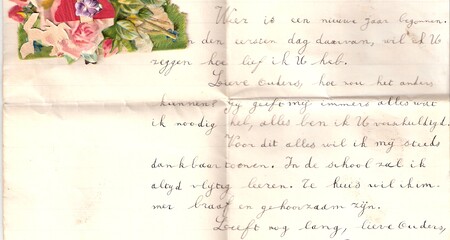 Weer is een nieuwe jaar begonnen.
den eersten dag daarvan, wil ik U
zeggen hoe lief ik U heb.
Lieve Ouders, hoe zou het anders
kunnen? Gy geeft my immers alles wat
ik noodig heb, alles ben ik U verschuldigd.
Voor dit alles wil ik my steeds
dankbaar toonen. In de school zal ik
altyd vlytig leeren. Te huis wil ik im-
mer braaf en gehoorzaam zijn.
Leeft nog lang, lieve Ouders,